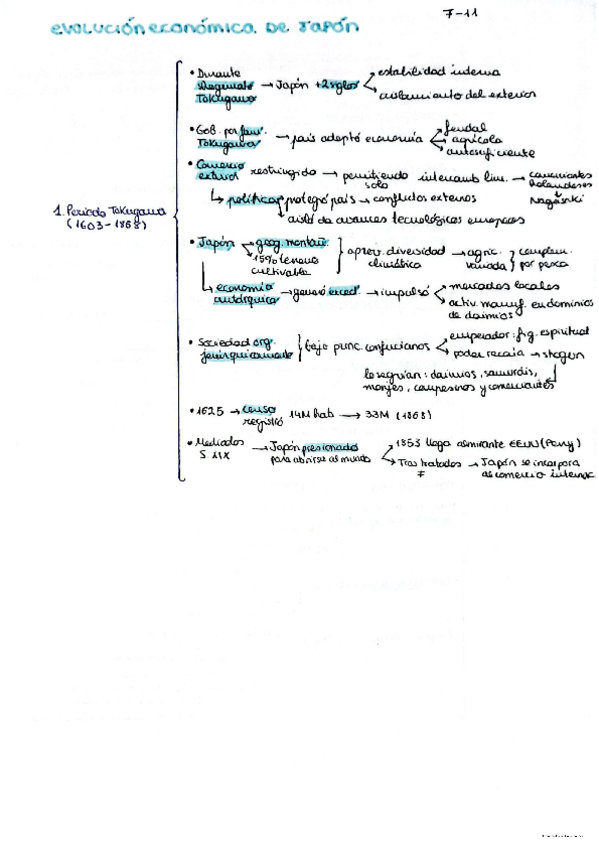 7-11
EVOLUCIÓN ECONÓMICA DE JAPÓN
1. Periodo Tokugawa
(1603-1868)
• Durante shogunato Tokugawa → Japón +2 siglos → estabilidad interna
→ aislamiento del exterior
• Gob. por fam. Tokugawa → país adoptó economía → feudal
→ agrícola
→ autosuficiente
• Comercio exterior restringido → permitiendo solo intercamb lim. → comerciantes holandeses → Nagasaki
↳ políticas protegió país → conflictos externos
→ aisló de avances tecnológicos europeos
• Japón → geog. montañ.
15% terreno cultivable
} aprov. diversidad climática → agric. variada } complem. por pesca
↳ economía autárquica → generó exced. → impulsó → mercados locales
→ activ. manuf. en dominios de daimios
• Sociedad org. jerárquicamente } bajo princ. confucianos → emperador: fig. espiritual
→ poder recaía → shogun
le seguían: daimios, samuráis, monjes, campesinos y comerciantes
• 1625 → censo registró 14M hab → 33M (1868)
• Mediados S. XIX → Japón presionado para abrirse al mundo → 1853 llega almirante EEUU (Perry)
→ Tras tratados ≠ → Japón se incorpora al comercio internac